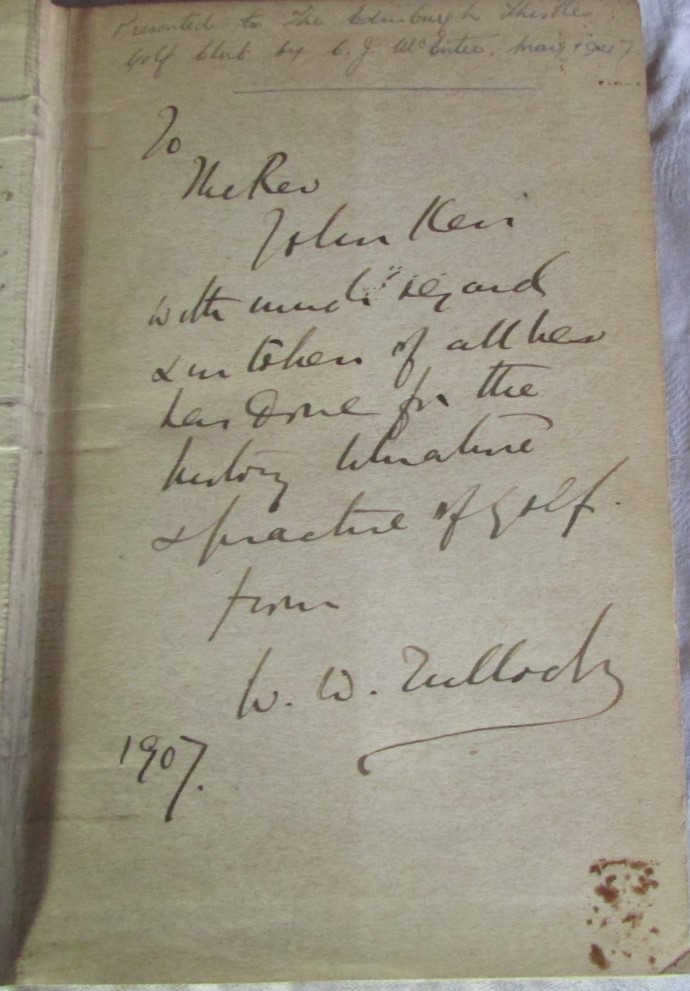 Presented to The Edinburgh Thistle
Golf Club by C. J. McEntee. May
To
The Rev
John Kerr
with much regard
& in token of all he
has done for the
history literature
& practice of golf.
from
W. W. Tulloch
1907.